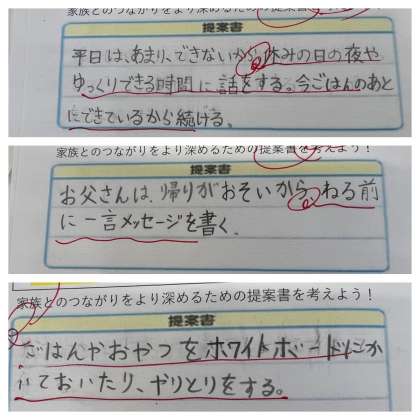 家族とのつながりをより深めるための提案書を考え
提案書
平日は、あまり、できないから、休みの日の夜や
ゆっくりできる時間に話をする。今ごはんのあと
にできているから続ける。
家族とのつながりをより深めるための提案書を考えよう！
提案書
お父さんは、帰りがおそいから、ねる前
に一言メッセージを書く。
家族とのつながりをより深めるための提案書を考えよう！
提案書
ごはんやおやつをホワイトボードにか
いておいたり、やりとりをする。